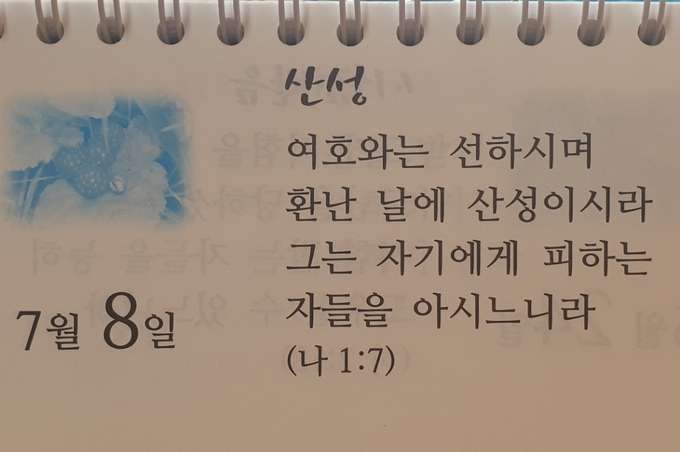 산성
여호와는 선하시며
환난 날에 산성이시라
그는 자기에게 피하는
자들을 아시느니라
(나 1:7)
7월 8일